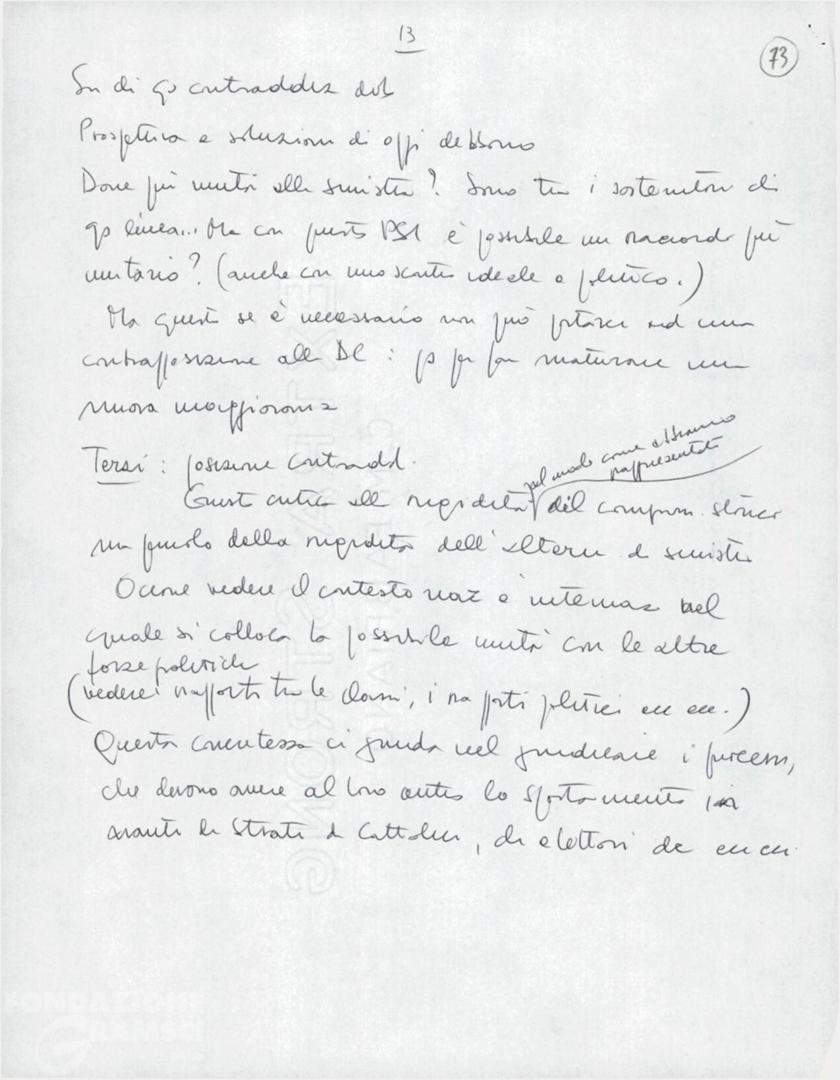 13
73
Su di qs contraddiz dob
Prospettiva e soluzioni di oggi debbono
Dare più unità alla sinistra? Sono tra i sostenitori di
qs linea... Ma con questo PSI è possibile un raccordo più
unitario? (anche con uno scontro ideale e politico.)
Ma questo se è necessario non può portarci ad una
contrapposizione alla DC: qs per far maturare una
nuova maggioranza
Tersi: posizione contradd.
nel modo come abbiamo
rappresentato
Giusta critica alla rigidità del comprom. storico
un pericolo della rigidità dell'altern di sinistra
Occorre vedere il contesto naz e internaz nel
quale si colloca la possibile unità con le altre
forze politiche
(vedere i rapporti tra le classi, i rapporti politici ecc ecc.)
Questa concretezza ci guida nel giudicare i processi,
che devono avere al loro centro lo spostamento in
avanti di strati di cattolici, di elettori dc ecc ecc.
FONDAZIONE
GRAMSCI
EXTRA STRONG